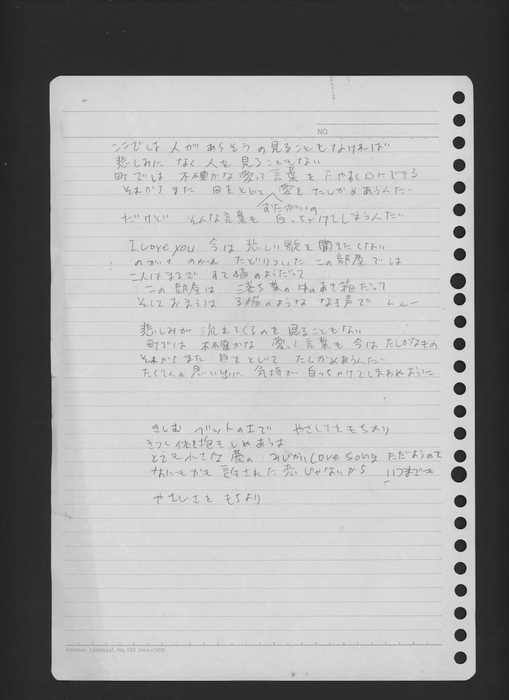 NO.
ここでは 人があらそうの見ることもなければ
悲しみに なく 人を 見ることもない
町では 不確かな 愛って言葉を たやすく口にできる
それから また 目をとじて 愛を たしかめあうんだ
おたがいの
だけど そんな言葉も 白っちゃけてしまうんだ
I Love you 今は 悲しい歌を聞きたくない
のがれ のがれ たどりついた この部屋では
二人はまるで すて猫のようだって
この部屋は 落ち葉の中のあき箱だって
そしておまえは 子猫のような なき声で
悲しみが 流れてくるのを 見ることもない
町では 不確かな 愛って言葉も 今は たしかなもの
それから また 目をとじて たしかめあうんだ
たくさんの 思い出に 気持が 白っちゃけてしまわぬように
きしむ ベットの上で やさしさをもちより
きつく体を抱きしめあえば
とても小さな 愛の みじかい Love song ただようので
なにもかも 許された恋じゃないから いつまでも
やさしさを もちより